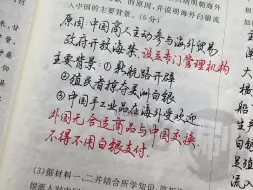 的原因,并说明海外白银流
入中国的主要背景。(6分)
原因:中国商人主动参与海外贸易,
政府开放海禁,设立专门管理机构
主要背景:①新航路开辟
②殖民者掠夺美洲白银
③中国手工业品在海外受欢迎
外国无合适商品与中国交换,
不得不用白银支付.
(3)据材料一、二并结合所学知识,